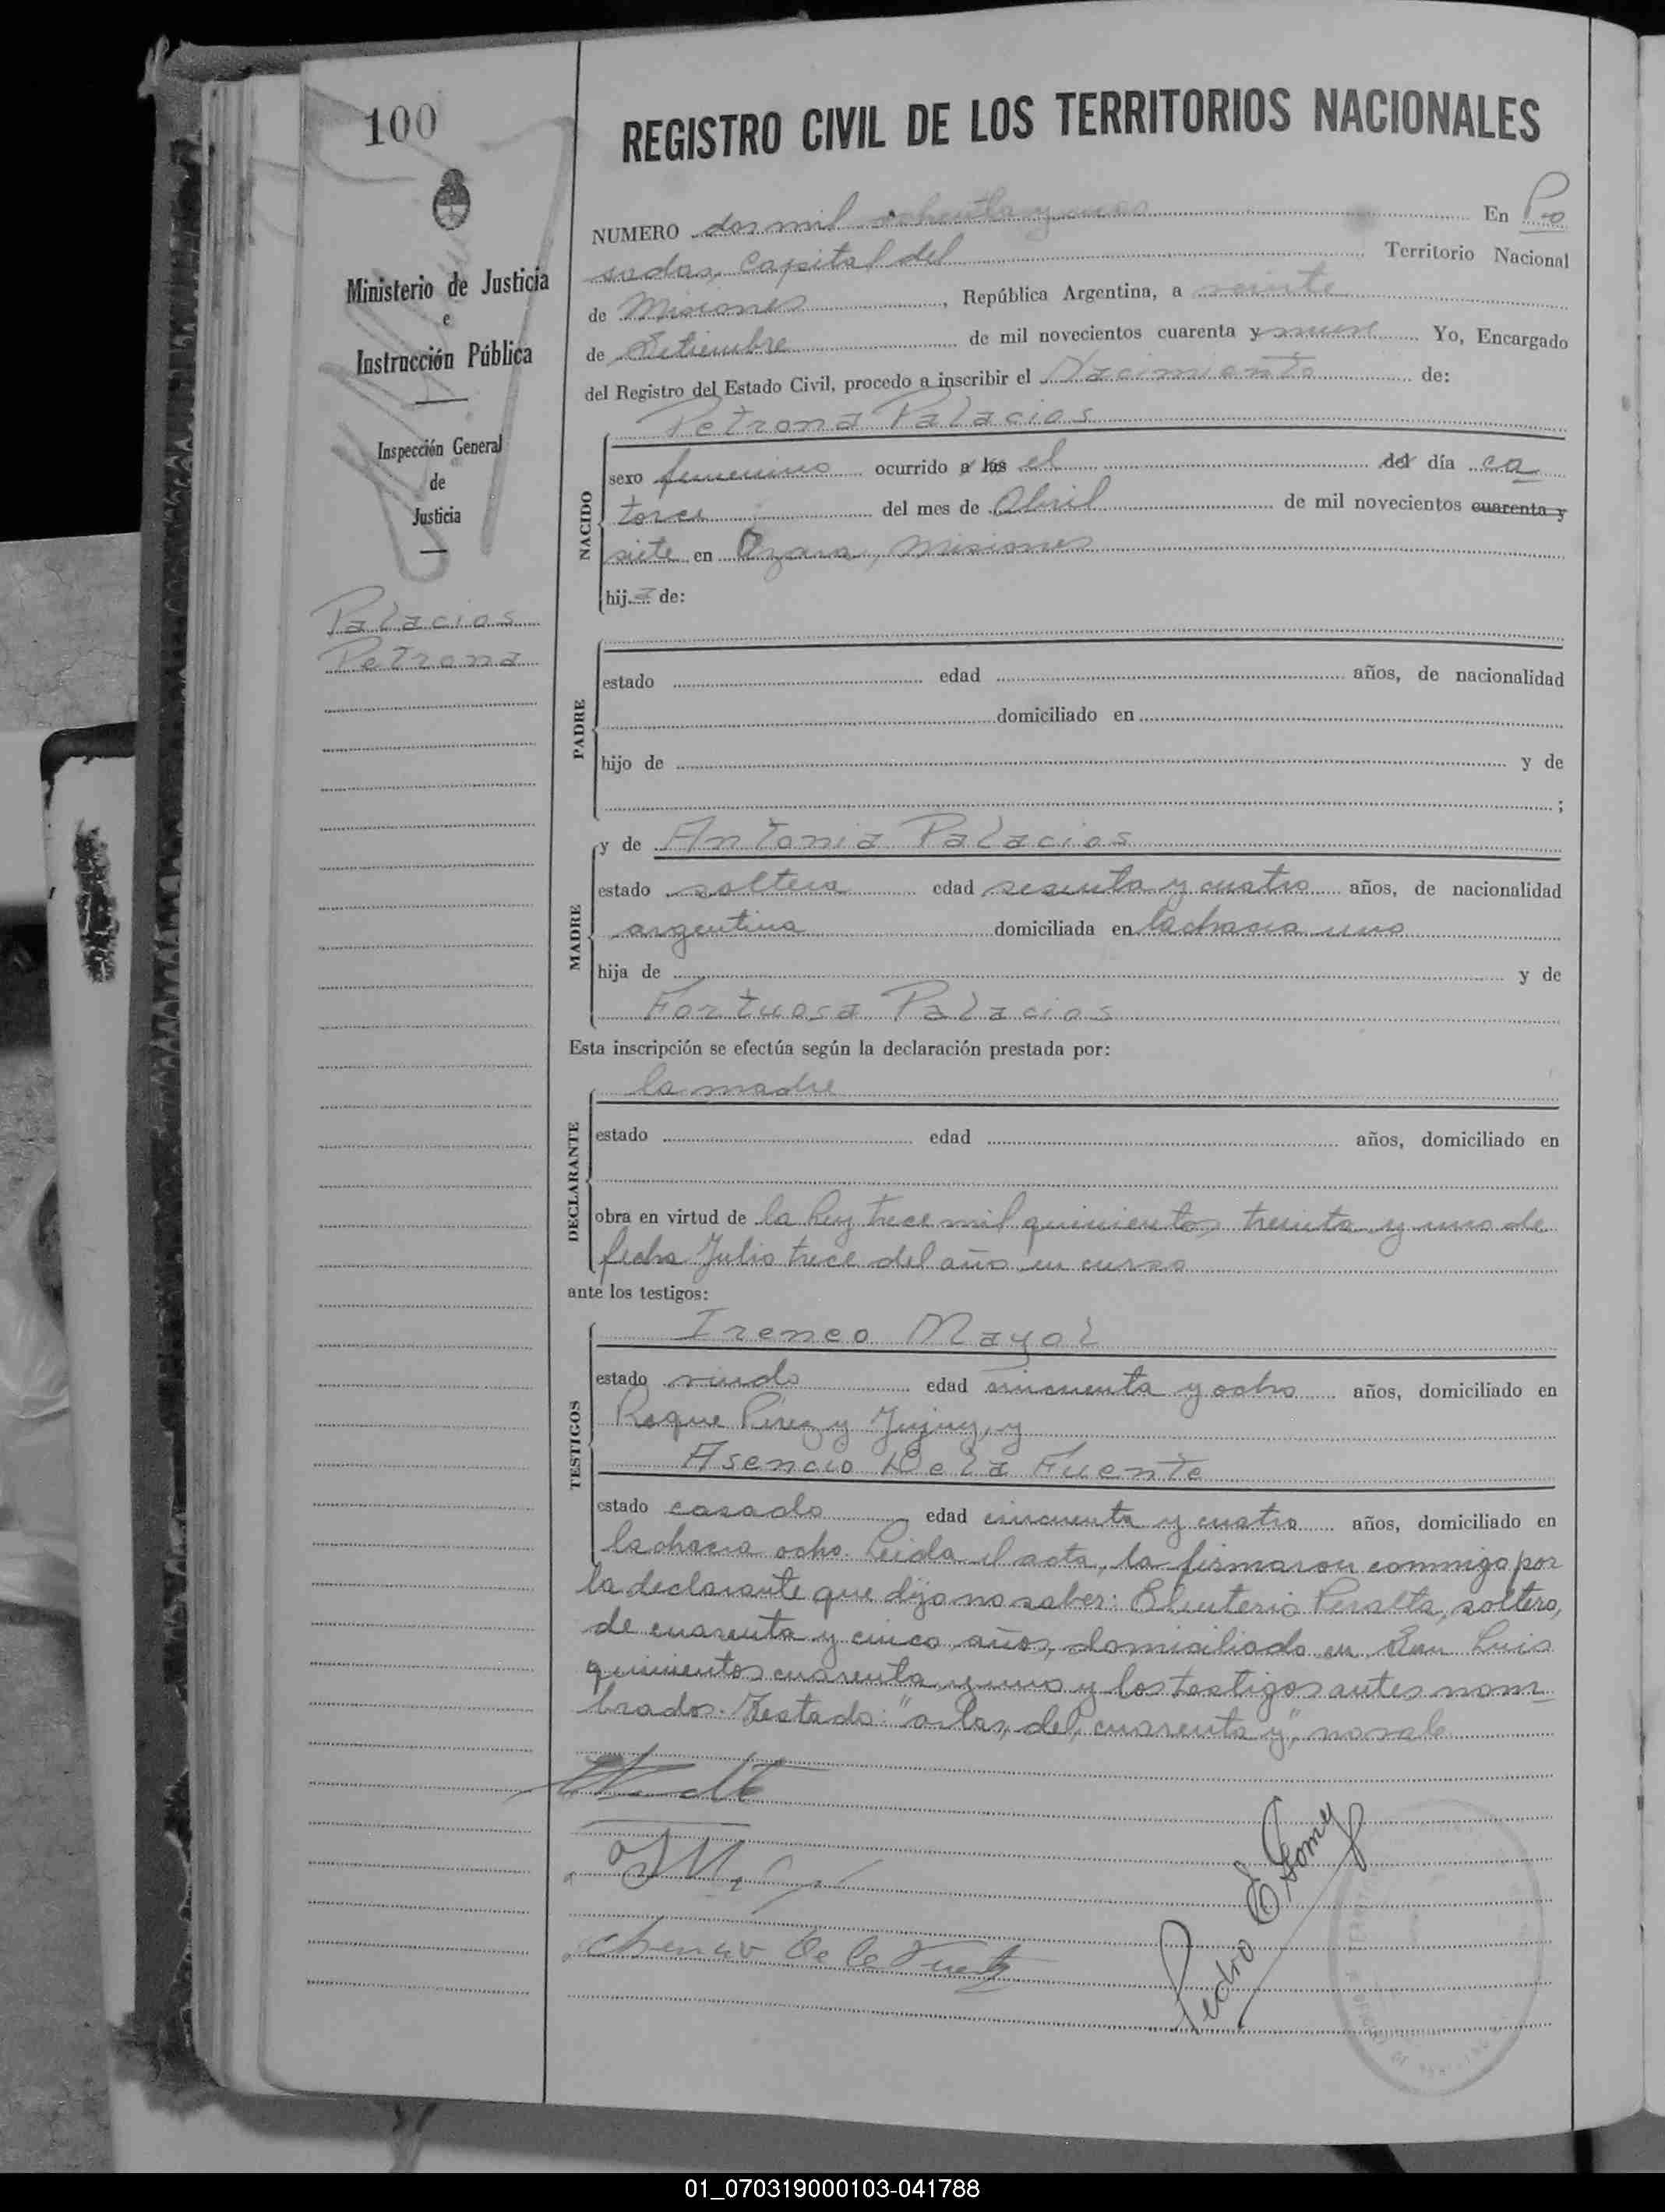 100
REGISTRO CIVIL DE LOS TERRITORIOS NACIONALES
Ministerio de Justicia
e
Instrucción Pública
Inspección General
de
Justicia
Palacios
Petrona
NUMERO dos mil ochenta y uno En Po
sadas, Capital del Territorio Nacional
de Misiones, República Argentina, a veinte
de Setiembre de mil novecientos cuarenta y nueve Yo, Encargado
del Registro del Estado Civil, procedo a inscribir el Nacimiento de:
Petrona Palacios
NACIDO
sexo femenino ocurrido a las el del día ca
torce del mes de Abril de mil novecientos cuarenta y
siete en Azara, Misiones
hija de:
PADRE
estado edad años, de nacionalidad
domiciliado en
hijo de y de
;
MADRE
y de Antonia Palacios
estado soltera edad sesenta y cuatro años, de nacionalidad
argentina domiciliada en la chacra uno
hija de y de
Fortuosa Palacios
Esta inscripción se efectúa según la declaración prestada por:
DECLARANTE
la madre
estado edad años, domiciliado en
obra en virtud de la Ley trece mil quinientos treinta y uno de
fecha Julio trece del año en curso
ante los testigos:
TESTIGOS
Ireneo Mayol
estado viudo edad cincuenta y ocho años, domiciliado en
Roque Pérez y Jujuy, y
Asencio De la Fuente
estado casado edad cincuenta y cuatro años, domiciliado en
la chacra ocho. Leida el acta, la firmaron conmigo por
la declarante que dijo no saber: Eleuterio Peralta, soltero,
de cuarenta y cinco años, domiciliado en San Luis
quinientos cuarenta y uno y los testigos antes nom
brados. Testado: "a las, del, cuarenta y", no vale
Asencio De la Fuente
Pedro E Gomez
01_070319000103-041788